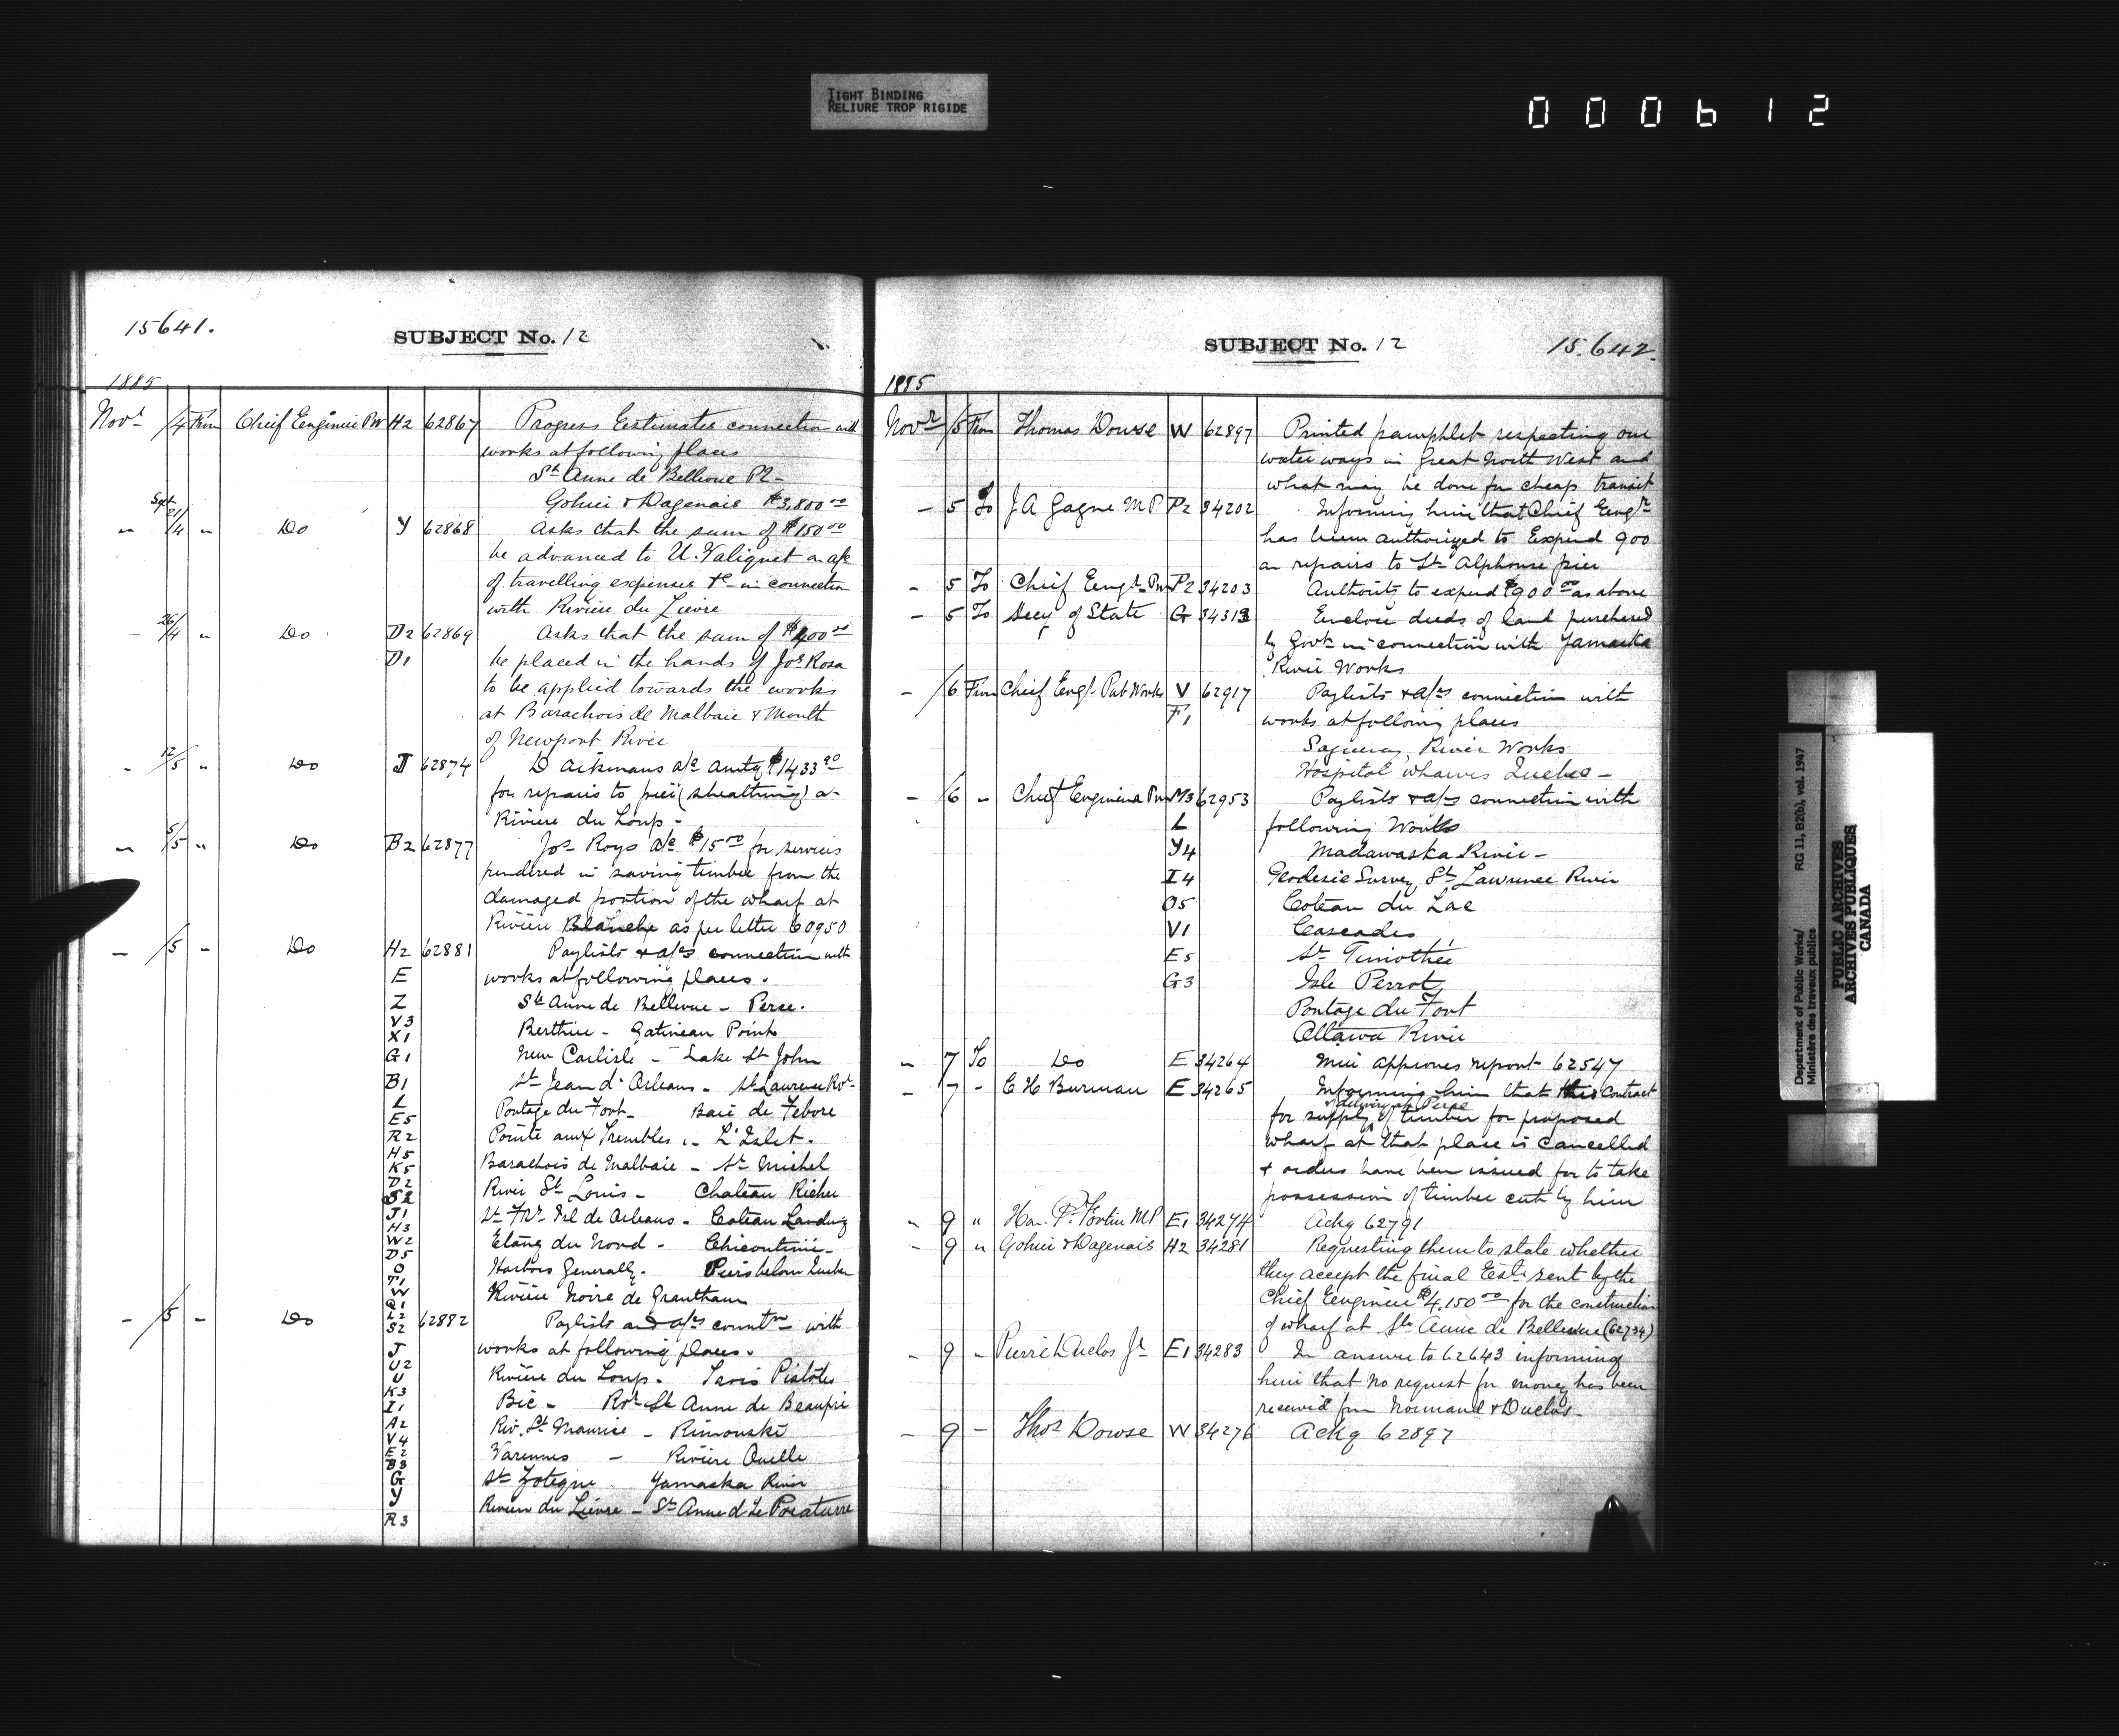 TIGHT BINDING
RELIURE TROP RIGIDE
000612
15641.
SUBJECT No. 12
1885
Novr /4 From Chief Engineer PW H2 62867 Progress Estimates connection with
works at following places
St Anne de Bellevue P2 -
Gohier & Dagenais $3,800 00
" Sept 21/4 " Do Y 62868 Asks that the sum of $150 00
be advanced to U. Valiquet on a/c
of travelling expenses &c in connection
with Rivière du Lièvre
- 26/4 " Do D2 62869 Asks that the sum of $400 00
D1 be placed in the hands of Jos. Rosa
to be applied towards the works
at Barachois de Malbaie & Mouth
of Newport River
- 12/5 " Do J 62874 D Aikmans a/c amtg $1433 90
for repairs to pier (sheathing) a-
Rivière du Loup -
- 5/5 " Do B2 62877 Jos Roys a/c $15 00 for services
rendered in saving timber from the
damaged portion of the wharf at
Rivière Blanche as per letter 60950
- /5 - Do H2 62881 Paylists & a/cs connection with
E works at following places.
Z Ste Anne de Bellevue - Perce.
V3 Berthier - Gatineau Point
X1
G1 New Carlisle - Lake St John
B1 St Jean d'Orleans - St Lawrence Rvr
L Portage du Fort - Baie de Febvre
E5
R2 Pointe aux Trembles - L'Islet.
H5
K5 Barachois de Malbaie - St Michel
D2 River St Louis - Chateau Richer
S2
J1 St Frs. Isl de Orleans - Coteau Landing
H3
W2 Etang du Nord - Chicoutimi -
D5
O Harbors Generally. Piers below Quebec
T1
W Rivière Noire de Grantham
Q1
L2
- /5 - Do S2 62882 Paylists and a/cs connectn with
J works at following places.
U2 Rivière du Loup. Trois Pistoles
U
K3 Bic - Rvr Ste Anne de Beaupré
I1
A2 Riv. St Maurice - Rimouski
V4
E2 Varennes - Rivière Ouelle
B3
G St Zotique Yamaska River
Y Rivière du Lièvre - Ste Anne d La Pocatiere
R3
SUBJECT No. 12
15.642.
1885
Novr /5 From Thomas Dowse W 62897 Printed pamphlet respecting our
water ways in Great North West and
what may be done for cheap transit
- 5 To J A Gagne MP P2 34202 Informing him that Chief Engr
has been authorized to Expend 900
on repairs to St Alphonse pier
- 5 To Chief Engr PW P2 34203 Authority to expend $900 00 as above
- 5 To Secy of State G 34313 Enclose deeds of land purchased
by Govt in connection with Yamaska
River Works
- /6 From Chief Engr Pub Works V 62917 Paylists & a/cs connection with
F1 works at following places
Saguenay River Works
Hospital wharves Quebec -
- /6 " Chief Engineer PW M3 62953 Paylists & a/cs connection with
L following Works
Y4 Madawaska River -
I4 Geodesic Survey St Lawrence River
O5 Coteau du Lac
V1 Cascades
E5 St Timothée
G3 Isle Perrot
Portage du Fort
Ottawa River
- 7 To Do E 34264 Min approves report 62547
- 7 - C H Burman E 34265 Informing him that this contract
& delivery at Perce
for supply of timber for proposed
wharf at that place is cancelled
& orders have been issued for to take
possession of timber cut by him
- 9 " Hon. P. Fortin MP E1 34274 Ackg 62791
- 9 " Gohier & Dagenais H2 34281 Requesting them to state whether
they accept the final Est. sent by the
Chief Engineer $4,150 00 for the construction
of wharf at Ste Anne de Bellevue (62734)
- 9 " Pierre Duclos Jr E1 34283 In answer to 62643 informing
him that no request for money has been
received from Normand & Duclos -
- 9 - Thos Dowse W 34276 Ackg 62897
Department of Public Works/ RG 11, B2(b), vol. 1947
Ministère des travaux publics
PUBLIC ARCHIVES
ARCHIVES PUBLIQUES
CANADA